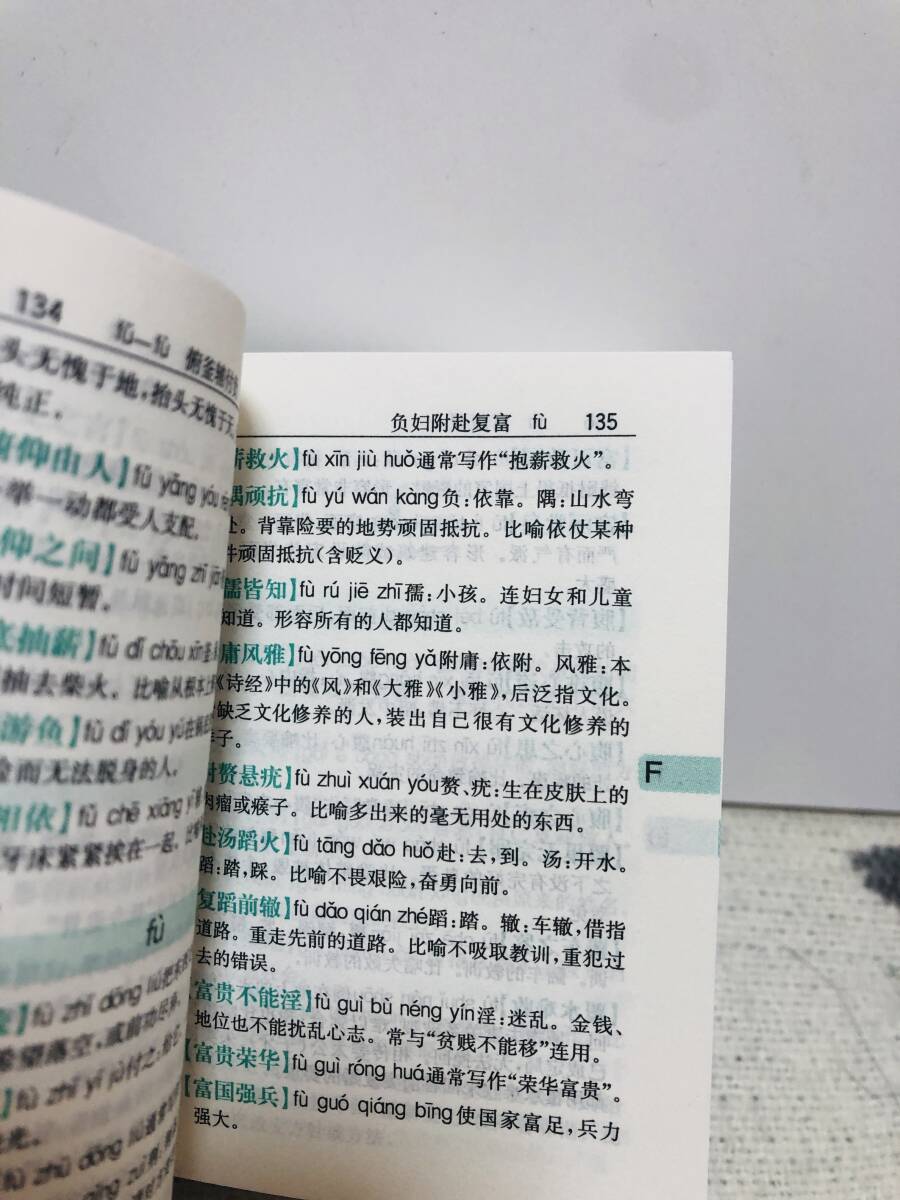 134 fǔ—fù 俯釜
头无愧于地,抬头无愧于天
纯正。
仰由人】fǔ yǎng yóu
举一动都受人支配。
仰之间】fǔ yǎng zhī
时间短暂。
底抽薪】fǔ dǐ chōu xīn
抽去柴火。比喻从根本上
游鱼】fǔ dǐ yóu yú
而无法脱身的人。
相依】fǔ chē xiāng yī
牙床紧紧挨在一起。
fù
fù zhī dōng liú把
希望落空,或前功尽弃。
fù zhī yī jù付之
光。
负妇附赴复富 fù 135
薪救火】fù xīn jiù huǒ通常写作“抱薪救火”。
隅顽抗】fù yú wán kàng负:依靠。隅:山水弯
处。背靠险要的地势顽固抵抗。比喻依仗某种
顽固抵抗(含贬义)。
孺皆知】fù rú jiē zhī孺:小孩。连妇女和儿童
知道。形容所有的人都知道。
庸风雅】fù yōng fēng yǎ附庸:依附。风雅:本
《诗经》中的《风》和《大雅》《小雅》,后泛指文化。
缺乏文化修养的人,装出自己很有文化修养的
样子。
附赘悬疣】fù zhuì xuán yóu赘、疣:生在皮肤上的
肉瘤或瘊子。比喻多出来的毫无用处的东西。
赴汤蹈火】fù tāng dǎo huǒ赴:去,到。汤:开水。
蹈:踏,踩。比喻不畏艰险,奋勇向前。
复蹈前辙】fù dǎo qián zhé蹈:踏。辙:车辙,借指
道路。重走先前的道路。比喻不吸取教训,重犯过
去的错误。
【富贵不能淫】fù guì bù néng yín淫:迷乱。金钱、
地位也不能扰乱心志。常与“贫贱不能移”连用。
【富贵荣华】fù guì róng huá通常写作“荣华富贵”。
【富国强兵】fù guó qiáng bīng使国家富足,兵力
强大。
F